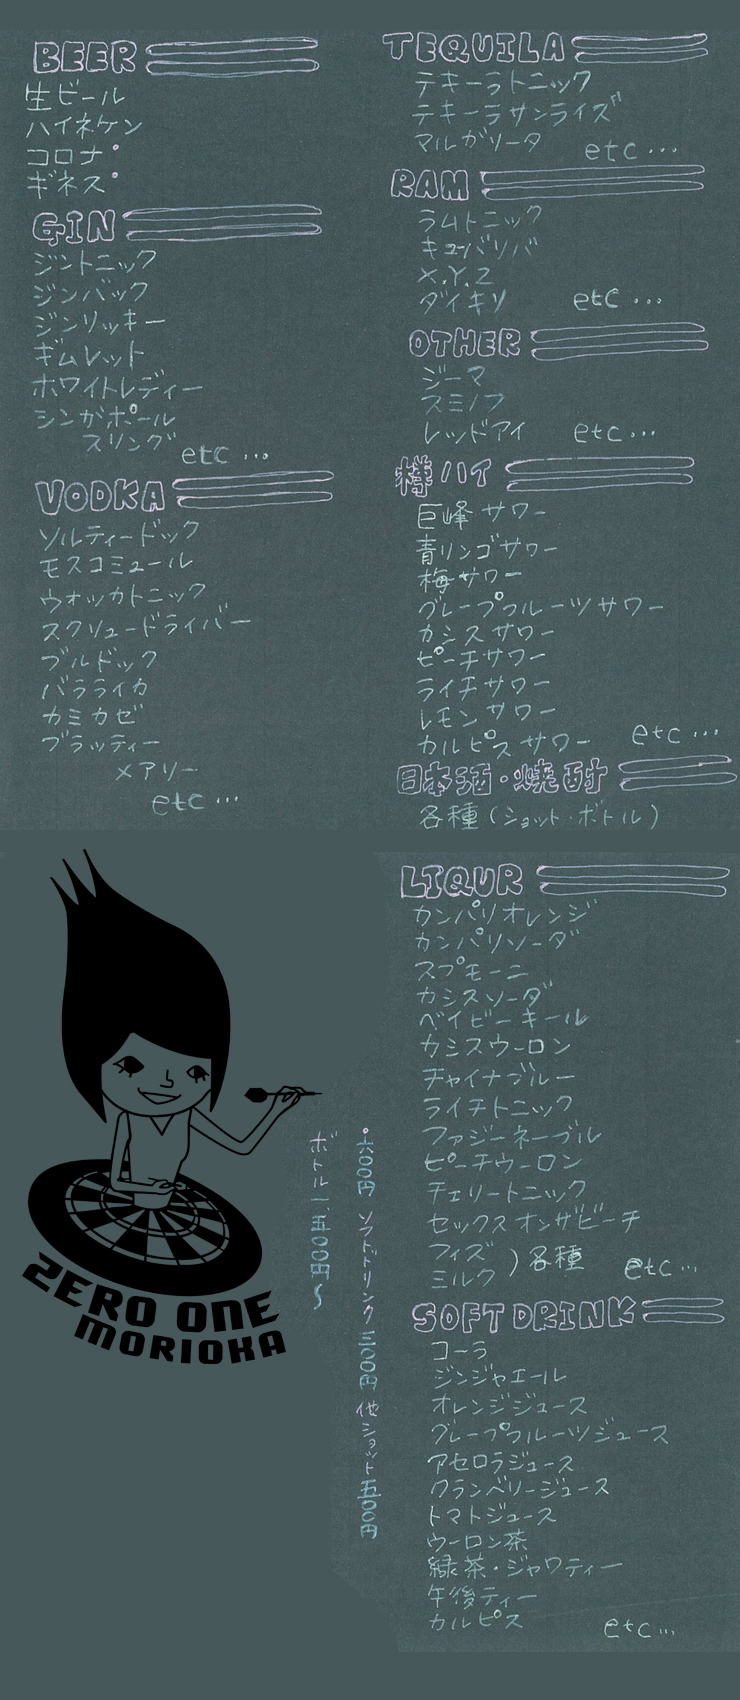 BEER
生ビール
ハイネケン
コロナ°
ギネス°
GIN
ジントニック
ジンバック
ジンリッキー
ギムレット
ホワイトレディー
シンガポール
スリング
etc…
VODKA
ソルティードック
モスコミュール
ウォッカトニック
スクリュードライバー
ブルドック
バラライカ
カミカゼ
ブラッティー
メアリー
etc…
TEQUILA
テキーラトニック
テキーラサンライズ
マルガリータ
etc…
RAM
ラムトニック
キューバリバ
X.Y.Z
ダイキリ
etc…
OTHER
ジーマ
スミノフ
レッドアイ
etc…
樽ハイ
巨峰サワー
青リンゴサワー
梅サワー
グレープフルーツサワー
カシスサワー
ピーチサワー
ライチサワー
レモンサワー
カルピスサワー
etc…
日本酒・焼酎
各種(ショット・ボトル)
LIQUR
カンパリオレンジ
カンパリソーダ
スプモーニ
カシスソーダ
ベイビーキール
カシスウーロン
チャイナブルー
ライチトニック
ファジーネーブル
ピーチウーロン
チェリートニック
セックスオンザビーチ
フィズ
ミルク
)各種
etc…
SOFT DRINK
コーラ
ジンジャエール
オレンジジュース
グレープフルーツジュース
アセロラジュース
クランベリージュース
トマトジュース
ウーロン茶
緑茶・ジャワティー
午後ティー
カルピス
etc…
°六〇〇円 ソフトドリンク 三〇〇円 他ショット五〇〇円
ボトル一、五〇〇円〜
ZERO ONE
MORIOKA